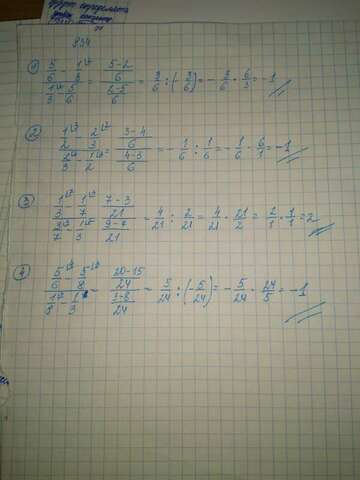 834
1) (5/6 - 1/3) / (1/3 - 5/6) = ((5-2)/6) / ((2-5)/6) = 3/6 : (-3/6) = -3/6 · 6/3 = -1
2) (1/2 - 2/3) / (2/3 - 1/2) = ((3-4)/6) / ((4-3)/6) = -1/6 : 1/6 = -1/6 · 6/1 = -1
3) (1/3 - 1/7) / (3/7 - 1/3) = ((7-3)/21) / ((9-7)/21) = 4/21 : 2/21 = 4/21 · 21/2 = 2/1 · 1/1 = 2
4) (5/6 - 5/8) / (1/8 - 1/3) = ((20-15)/24) / ((3-8)/24) = 5/24 : (-5/24) = -5/24 · 24/5 = -1